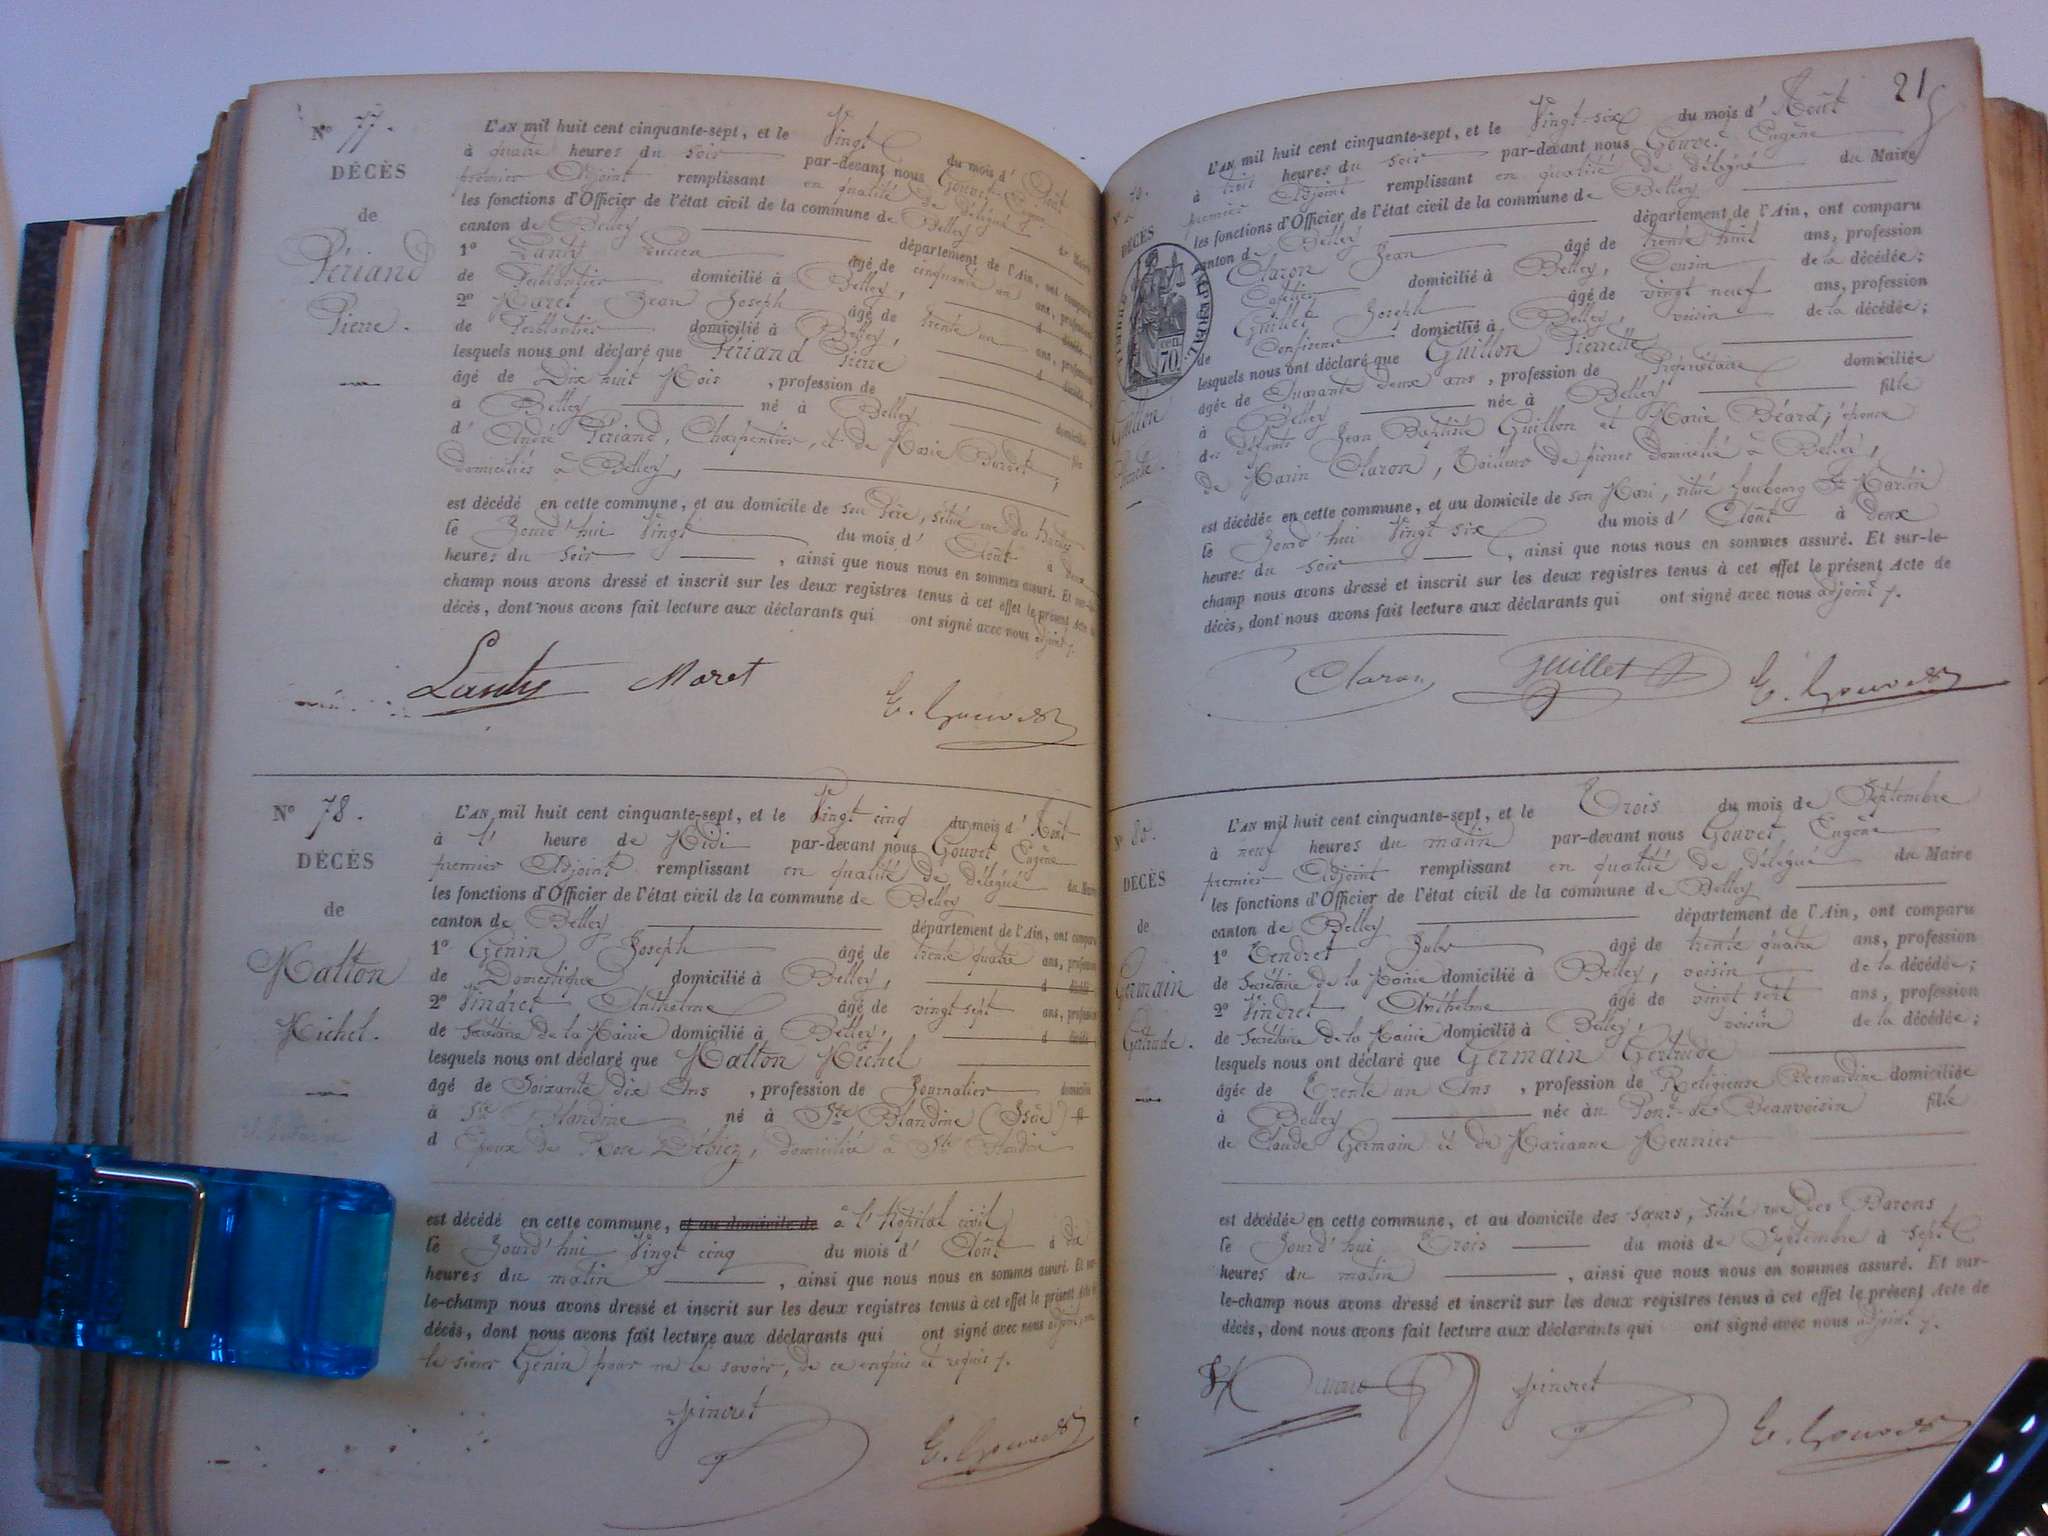 N° 77.
DÉCÈS
de
Périand
Pierre.
L'AN mil huit cent cinquante-sept, et le Vingt du mois d'Août
à quatre heures du soir par-devant nous Gouvet Eugène
premier Adjoint remplissant en qualité de délégué du Maire
les fonctions d'Officier de l'état civil de la commune de Belley
canton de Belley département de l'Ain, ont comparu
1° Landry Lucien âgé de cinquante un ans, profession
de Ferblantier domicilié à Belley, d décédé
2° Maret Jean Joseph âgé de trente un ans, profession
de Ferblantier domicilié à Belley, d décédé
lesquels nous ont déclaré que Périand Pierre
âgé de Dix huit Mois, profession de domicilié
à Belley né à Belley fils
d'André Périand, Charpentier, et de Marie Burdet,
domiciliés à Belley,
est décédé en cette commune, et au domicile de son Père, situé rue du
le Jourd'hui Vingt du mois d'Août à deux
heures du soir, ainsi que nous nous en sommes assuré. Et sur-le-
champ nous avons dressé et inscrit sur les deux registres tenus à cet effet le présent Acte de
décès, dont nous avons fait lecture aux déclarants qui ont signé avec nous adjoint
Landry Maret E. Gouvet
N° 78.
DÉCÈS
de
Matton
Michel.
L'AN mil huit cent cinquante-sept, et le Vingt cinq du mois d'Août
à l' heure de Midi par-devant nous Gouvet Eugène
premier Adjoint remplissant en qualité de délégué du Maire
les fonctions d'Officier de l'état civil de la commune de Belley
canton de Belley département de l'Ain, ont comparu
1° Génin Joseph âgé de trente quatre ans, profession
de Domestique domicilié à Belley, d décédé
2° Vindret Anthelme âgé de vingt sept ans, profession
de Secrétaire de la Mairie domicilié à Belley, d décédé
lesquels nous ont déclaré que Matton Michel
âgé de Soixante dix Ans, profession de Journalier domicilié
à Ste Blandine né à Ste Blandine (Isère) fi
d Epoux de Rose Débiez, domiciliée à Ste Blandine
est décédé en cette commune, et au domicile de à l'Hôpital civil
le Jourd'hui Vingt cinq du mois d'Août à dix
heures du matin, ainsi que nous nous en sommes assuré. Et sur-
le-champ nous avons dressé et inscrit sur les deux registres tenus à cet effet le présent Acte de
décès, dont nous avons fait lecture aux déclarants qui ont signé avec nous adjoint, non
le sieur Génin pour ne le savoir, de ce enquis et requis
Vindret E. Gouvet
21
DÉCÈS
TIMBRE IMPÉRIAL
70 cen
Guillon
Pierrette.
L'AN mil huit cent cinquante-sept, et le Vingt-six du mois d'Août
à trois heures du soir par-devant nous Gouvet Eugène
premier Adjoint remplissant en qualité de délégué du Maire
les fonctions d'Officier de l'état civil de la commune de Belley
canton de Belley département de l'Ain, ont comparu
Claron Jean âgé de trente huit ans, profession
Cafetier domicilié à Belley, Cousin de la décédée;
Guillet Joseph âgé de vingt neuf ans, profession
de Confiseur domicilié à Belley, voisin de la décédée;
lesquels nous ont déclaré que Guillon Pierrette
âgée de Quarante deux ans, profession de Propriétaire domiciliée
à Belley née à Belley fille
des défunts Jean Baptiste Guillon et Marie Béard, épouse
de Marin Claron, Tailleur de pierres domicilié à Belley,
est décédée en cette commune, et au domicile de son Mari, situé faubourg St Martin
le Jourd'hui Vingt six du mois d'Août à deux
heures du soir, ainsi que nous nous en sommes assuré. Et sur-le-
champ nous avons dressé et inscrit sur les deux registres tenus à cet effet le présent Acte de
décès, dont nous avons fait lecture aux déclarants qui ont signé avec nous adjoint
Claron Guillet E. Gouvet
N° 80.
DÉCÈS
de
Germain
Gertrude.
L'AN mil huit cent cinquante-sept, et le Trois du mois de Septembre
à neuf heures du matin par-devant nous Gouvet Eugène
premier Adjoint remplissant en qualité de délégué du Maire
les fonctions d'Officier de l'état civil de la commune de Belley
canton de Belley département de l'Ain, ont comparu
1° Tendret Jules âgé de trente quatre ans, profession
de Secrétaire de la Mairie domicilié à Belley, voisin de la décédée;
2° Vindret Anthelme âgé de vingt sept ans, profession
de Secrétaire de la Mairie domicilié à Belley, voisin de la décédée;
lesquels nous ont déclaré que Germain Gertrude
âgée de Trente un Ans, profession de Religieuse Bernardine domiciliée
à Belley née au Pont-de-Beauvoisin fille
de Claude Germain et de Marianne Meunier
est décédée en cette commune, et au domicile des sœurs, situé rue des Barons
le Jourd'hui Trois du mois de Septembre à sept
heures du matin, ainsi que nous nous en sommes assuré. Et sur-
le-champ nous avons dressé et inscrit sur les deux registres tenus à cet effet le présent Acte de
décès, dont nous avons fait lecture aux déclarants qui ont signé avec nous adjoint
Vindret E. Gouvet